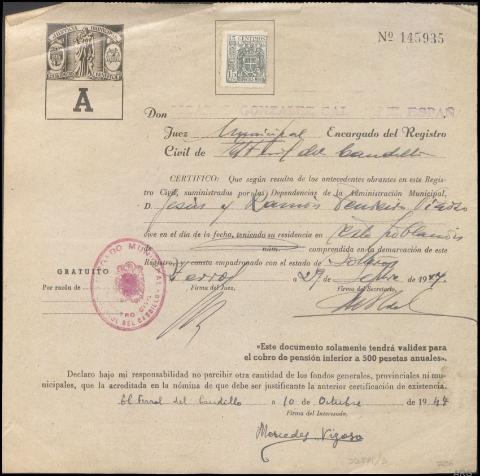 Nº 145935
A
15 CENTIMOS
Don GONZALEZ ESPAÑA
Juez Municipal Encargado del Registro
Civil de El Ferrol del Caudillo
CERTIFICO: Que según resulta de los antecedentes obrantes en este Regis-
tro Civil, suministrados por las Dependencias de la Administración Municipal,
D. Jesús y Ramón Tenreiro Vizoso
vive en el día de la fecha, teniendo su residencia en esta población
núm. comprendida en la demarcación de este
Registro, y consta empadronado con el estado de Solteros
GRATUITO
Ferrol a 29 1947
Por razón de
Firma del Juez,
Firma del Secretario,
JUZGADO MUNICIPAL
REGISTRO CIVIL
FERROL DEL CAUDILLO
«Este documento solamente tendrá validez para
el cobro de pensión inferior a 500 pesetas anuales».
Declaro bajo mi responsabilidad no percibir otra cantidad de los fondos generales, provinciales ni mu-
nicipales, que la acreditada en la nómina de que debe ser justificante la anterior certificación de existencia.
El Ferrol del Caudillo a 10 de Octubre de 1947
Firma del Interesado,
Mercedes Vizoso